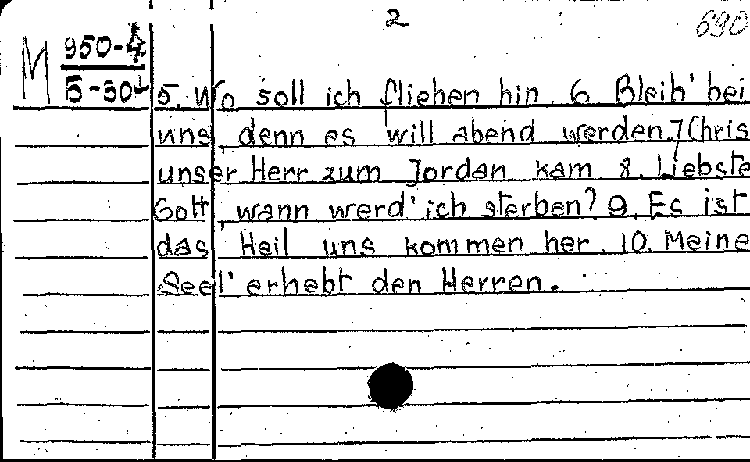 2
690
M 950-4
5-304
5. Wo soll ich fliehen hin 6. Bleib' bei
uns, denn es will abend werden. 7 Chris
unser Herr zum Jordan kam 8. Liebste
Gott, wann werd' ich sterben? 9. Es ist
das Heil uns kommen her. 10. Meine
Seel' erhebt den Herren.